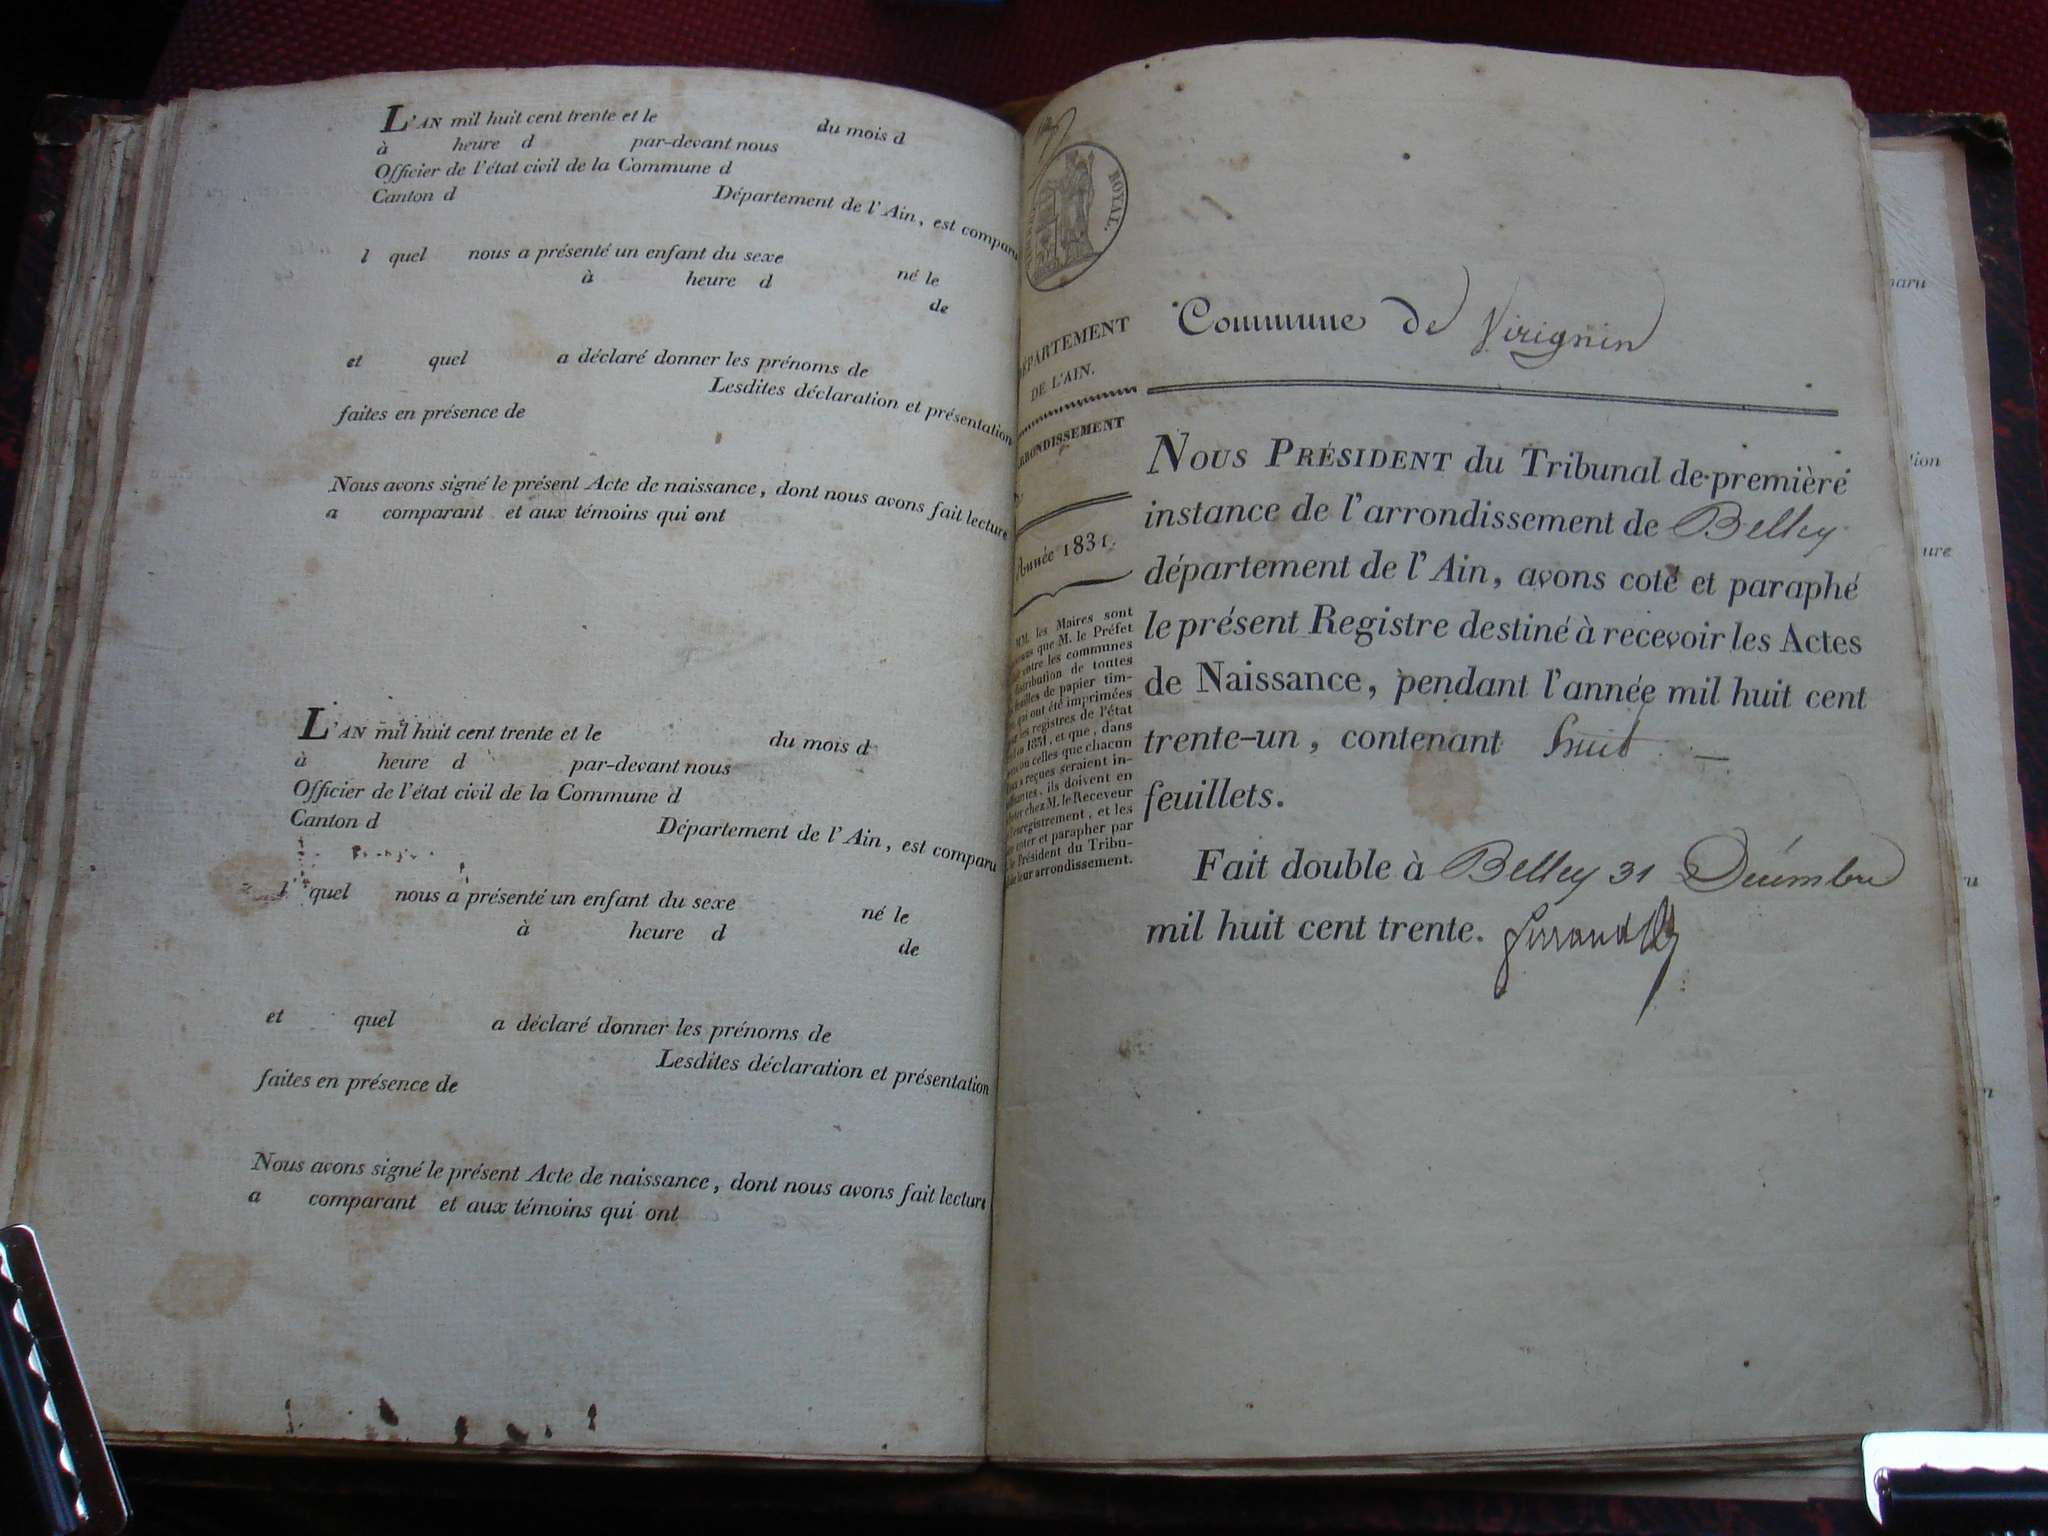 L'AN mil huit cent trente et le du mois d
à heure d par-devant nous
Officier de l'état civil de la Commune d
Canton d Département de l'Ain, est comparu
l quel nous a présenté un enfant du sexe né le
à heure d
de
et quel a déclaré donner les prénoms de
Lesdites déclaration et présentation
faites en présence de
Nous avons signé le présent Acte de naissance, dont nous avons fait lecture
a comparant et aux témoins qui ont
L'AN mil huit cent trente et le du mois d
à heure d par-devant nous
Officier de l'état civil de la Commune d
Canton d Département de l'Ain, est comparu
l quel nous a présenté un enfant du sexe né le
à heure d
de
et quel a déclaré donner les prénoms de
Lesdites déclaration et présentation
faites en présence de
Nous avons signé le présent Acte de naissance, dont nous avons fait lecture
a comparant et aux témoins qui ont
ROYAL.
DÉPARTEMENT
DE L'AIN.
ARRONDISSEMENT
Année 1831.
MM. les Maires sont
que M. le Préfet
entre les communes
distribution de toutes
feuilles de papier tim-
qui ont été imprimées
les registres de l'état
en 1831, et que, dans
où celles que chacun
a reçues seraient in-
, ils doivent en
chez M. le Receveur
l'enregistrement, et les
coter et parapher par
le Président du Tribu-
de leur arrondissement.
Commune de Virignin
NOUS PRÉSIDENT du Tribunal de première
instance de l'arrondissement de Belley
département de l'Ain, avons coté et paraphé
le présent Registre destiné à recevoir les Actes
de Naissance, pendant l'année mil huit cent
trente-un, contenant huit
feuillets.
Fait double à Belley 31 Décembre
mil huit cent trente.